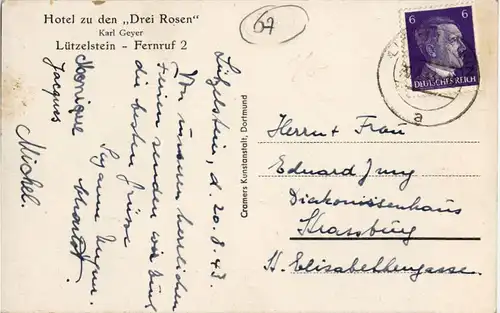 Hotel zu den „Drei Rosen"
Karl Geyer
Lützelstein - Fernruf 2
67
6 6
DEUTSCHES REICH
a
Lützelstein, d. 20.8.43
Von unseren herrlichen
Ferien senden wir Euch
die besten Grüsse
Suzanne
Monique
Jacques
Michel.
Cramers Kunstanstalt, Dortmund
Herrn + Frau
Eduard Jung
Diakonissenhaus
Strassburg
St. Elisabethengasse.